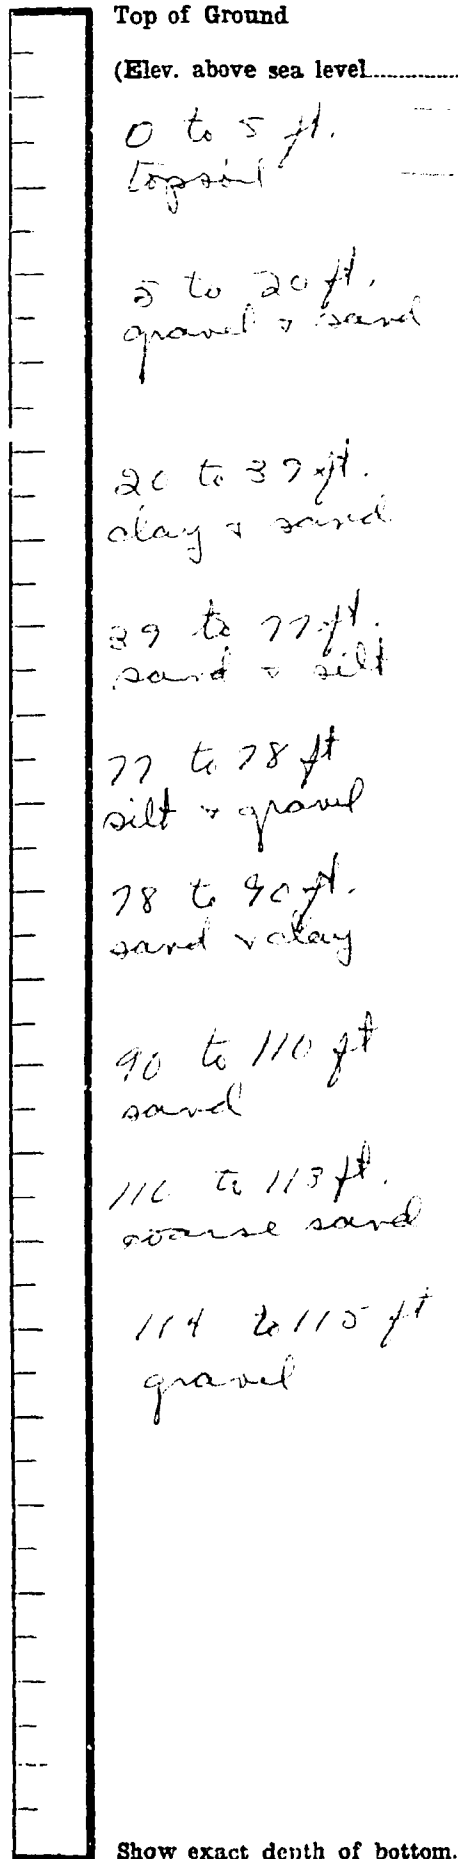 Top of Ground
(Elev. above sea level
0 to 5 ft.
topsoil
5 to 20 ft.
gravel & sand
20 to 39 ft.
clay & sand
39 to 77 ft.
sand & silt
77 to 78 ft
silt & gravel
78 to 90 ft.
sand & clay
90 to 110 ft
sand
110 to 113 ft.
coarse sand
114 to 115 ft
gravel
Show exact depth of bottom.